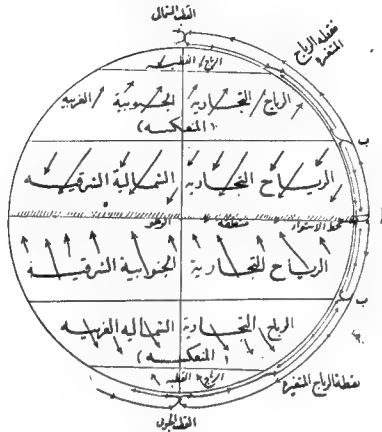 القطب الشمالي
نقطة الرياح المتغيرة
الرياح القطبية
الرياح التجارية الجنوبية الغربية
(المنعكسة)
ب
الرياح التجارية الشمالية الشرقية
خط الاستواء منطقة الرهو
الرياح التجارية الجنوبية الشرقية
ب
الرياح التجارية الشمالية الغربية
(المنعكسة)
الرياح القطبية
نقطة الرياح المتغيرة
القطب الجنوبي